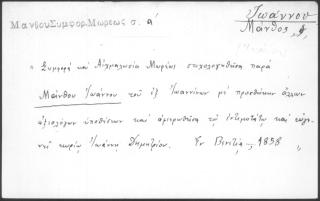 Μανθου Συμφορ. Μωρεως σ. α'
Ἰωάννου
Μάνθος
"Συμφορά καί Αἰχμαλωσία Μωρέως στιχολογηθεῖσα παρά
Μάνθου Ἰωάννου τοῦ ἐξ Ἰωαννίνων μέ προσθήκην ἄλλων
ἀξιολόγων ὑποθέσεων καί ἀφιερωθεῖσα τῷ ἐντιμοτάτῳ καί εὐγε-
νεῖ κυρίῳ Ἰωάννῃ Δημητρίου. Ἐν Βενετίᾳ, 1858 "